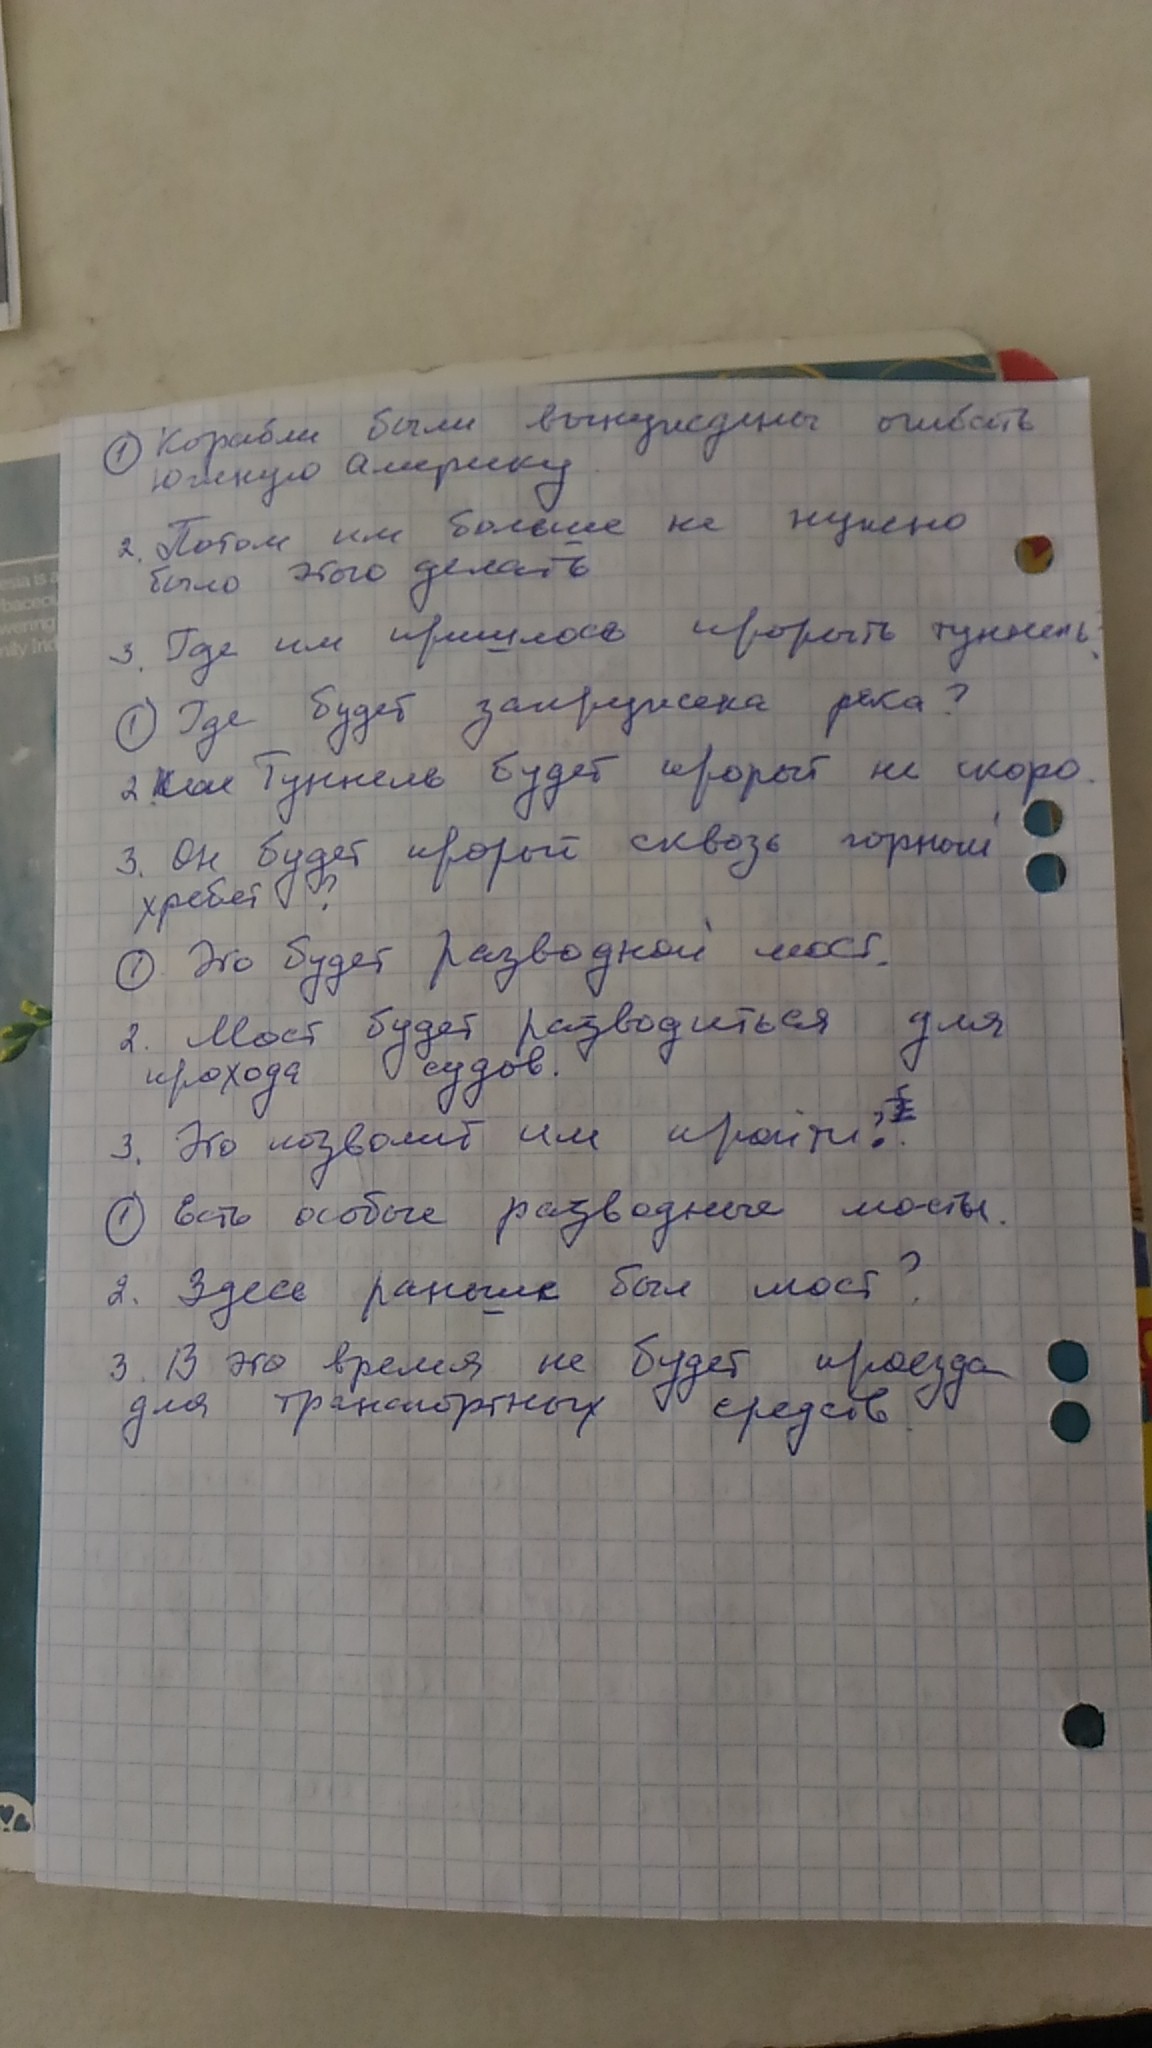 ① Корабли были вынуждены огибать
Южную Америку.
2. Потом им больше не нужно
было этого делать
3. Где им пришлось прорыть туннель?
① Где будет запружена река?
2. Туннель будет прорыт не скоро.
3. Он будет прорыт сквозь горный
хребет?
① Это будет разводной мост.
2. Мост будет разводиться для
прохода судов.
3. Это позволит им пройти?
① Есть особые разводные мосты.
2. Здесь раньше был мост?
3. В это время не будет проезда
для транспортных средств.
esia is a
bacec
wering
nity Ind